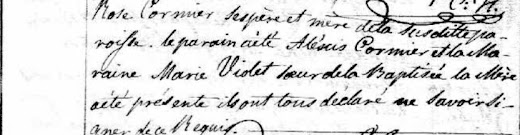 Rose Cormier ses père et mère de la susditte pa-
roisse. le parain a été Aléxis Cormier et la Ma-
raine Marie Violet sœur de la Baptisée la Mère
a été présente ils ont tous déclaré ne savoir si-
gner de ce Requis